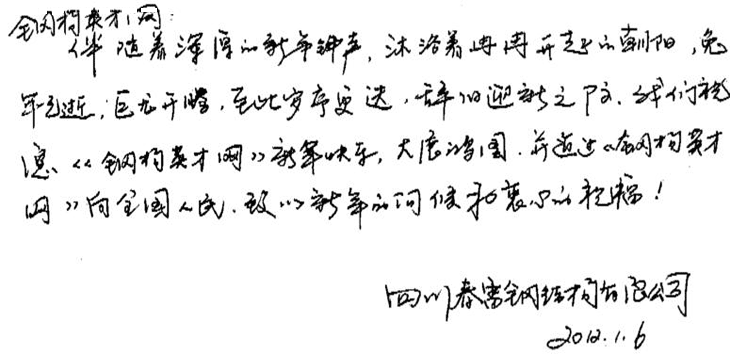 钢构英才网:
伴随着深厚的新年钟声,沐浴着冉冉升起的朝阳,兔
年已逝,巨龙开腾,至此岁序更迭,辞旧迎新之际,我们祝
愿《钢构英才网》新年快乐,大展鸿图.并通过《钢构英才
网》向全国人民.致以新年的问候和衷心的祝福!
四川春雷钢结构有限公司
2012.1.6